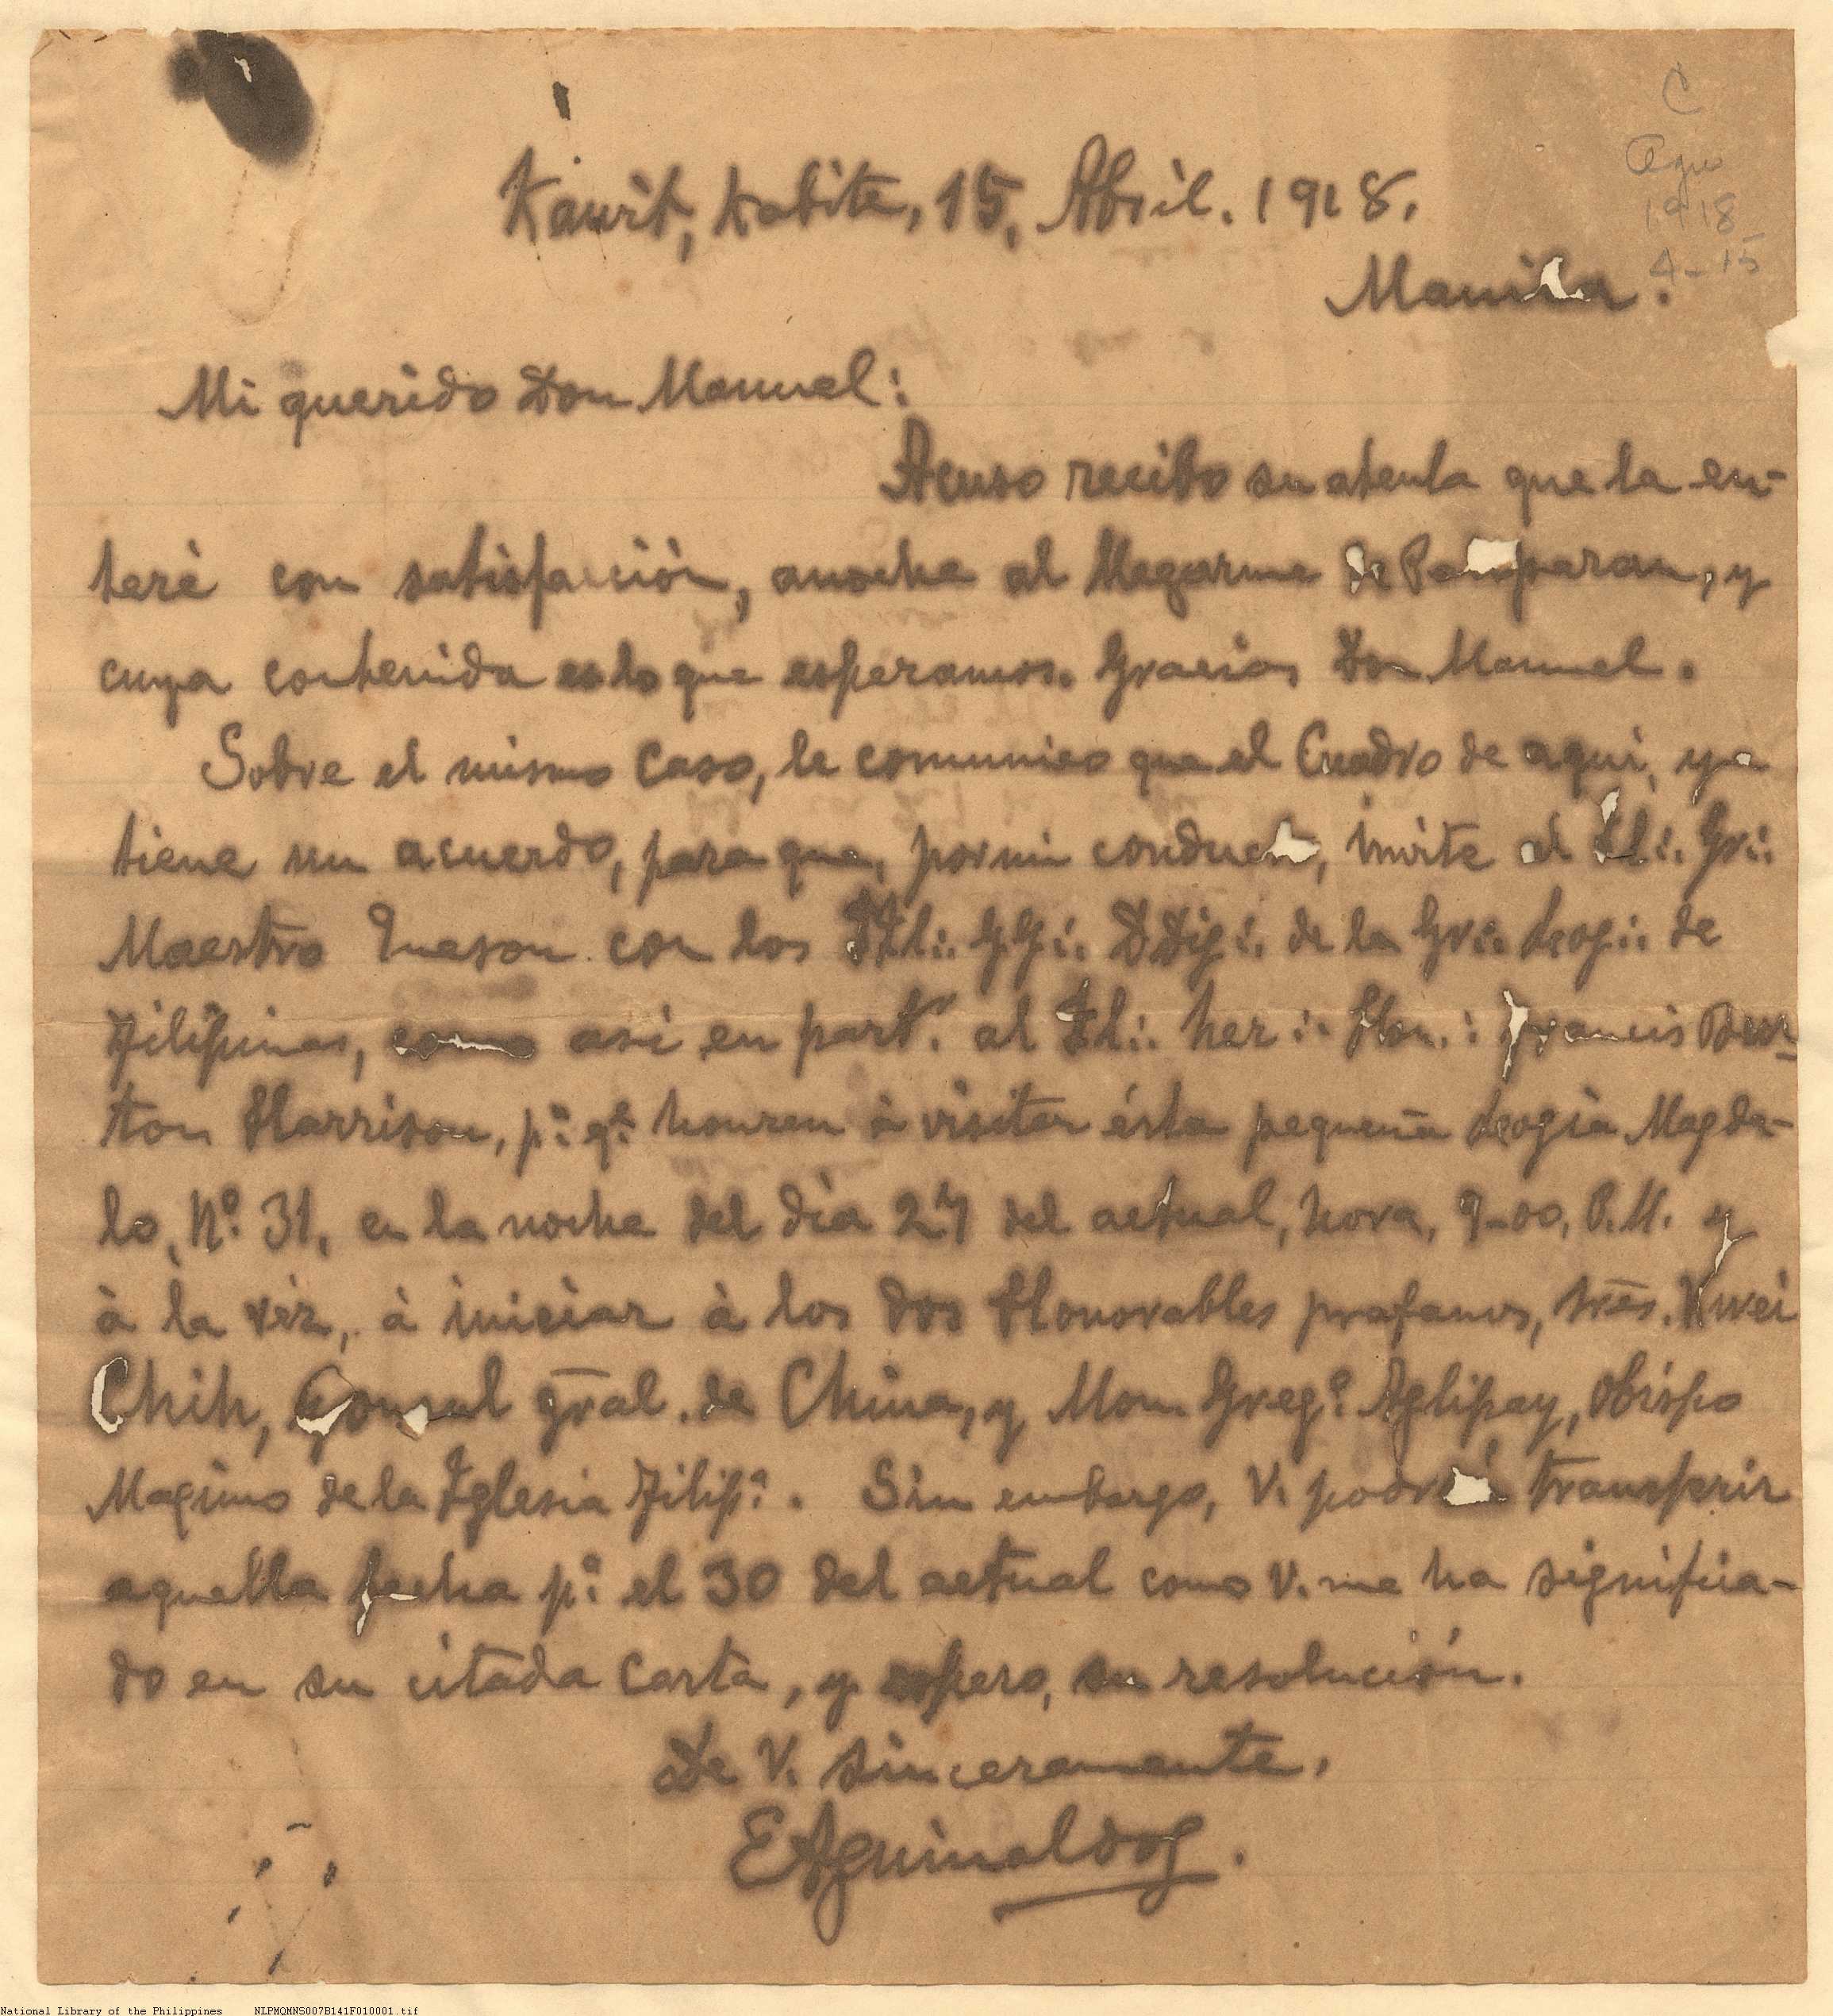 C
Agu
1918
4-15
Kawit, Kabite, 15, Abril. 1918.
Manila.
Mi querido Don Manuel:
Acuso recibo su atenta que la en-
teré con satisfacción, anoche al de y
cuya contenida es lo que esperamos. Gracias Don Manuel.
Sobre el mismo Caso, le comunico que el Cuadro de aqui, ya
tiene un acuerdo, para que, por mi conducto, invite al Il∴ Gr∴
Maestro Queson con los IIl∴ GG∴ DDig∴ de la Gr∴ Logi∴ de
Filipinas, como asi en part. al Il∴ her∴ Hon∴ Francis Bur-
ton Harrison, pª qe honren à visitar ésta pequeña Logia Magda-
lo, Nº 31, en la noche del dia 27 del actual, hora, 9-00, P.M. y
à la véz, à iniciar à los dos Honorables profanos, tres. Kwei
Chih, Consul gral. de China, y Mon. Gregº Aglipay, Obispo
Maximo de la Iglesia Filipª. Sin embargo, V. podrá transferir
aquella fecha pª el 30 del actual como V. me ha significa-
do en su citada Carta, y espero, su resolución.
De V. sinceramente,
EAguinaldoF.
National Library of the Philippines NLPMQMNS007B141F010001.tif